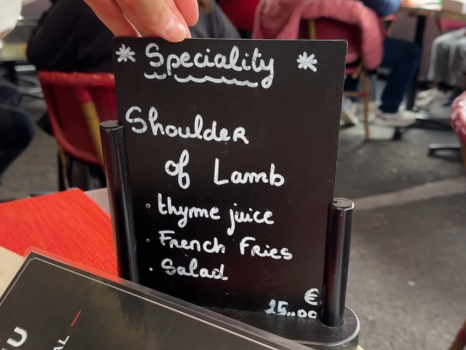 * Speciality *
Shoulder
of Lamb
· thyme juice
· French Fries
· Salad
€
25,00